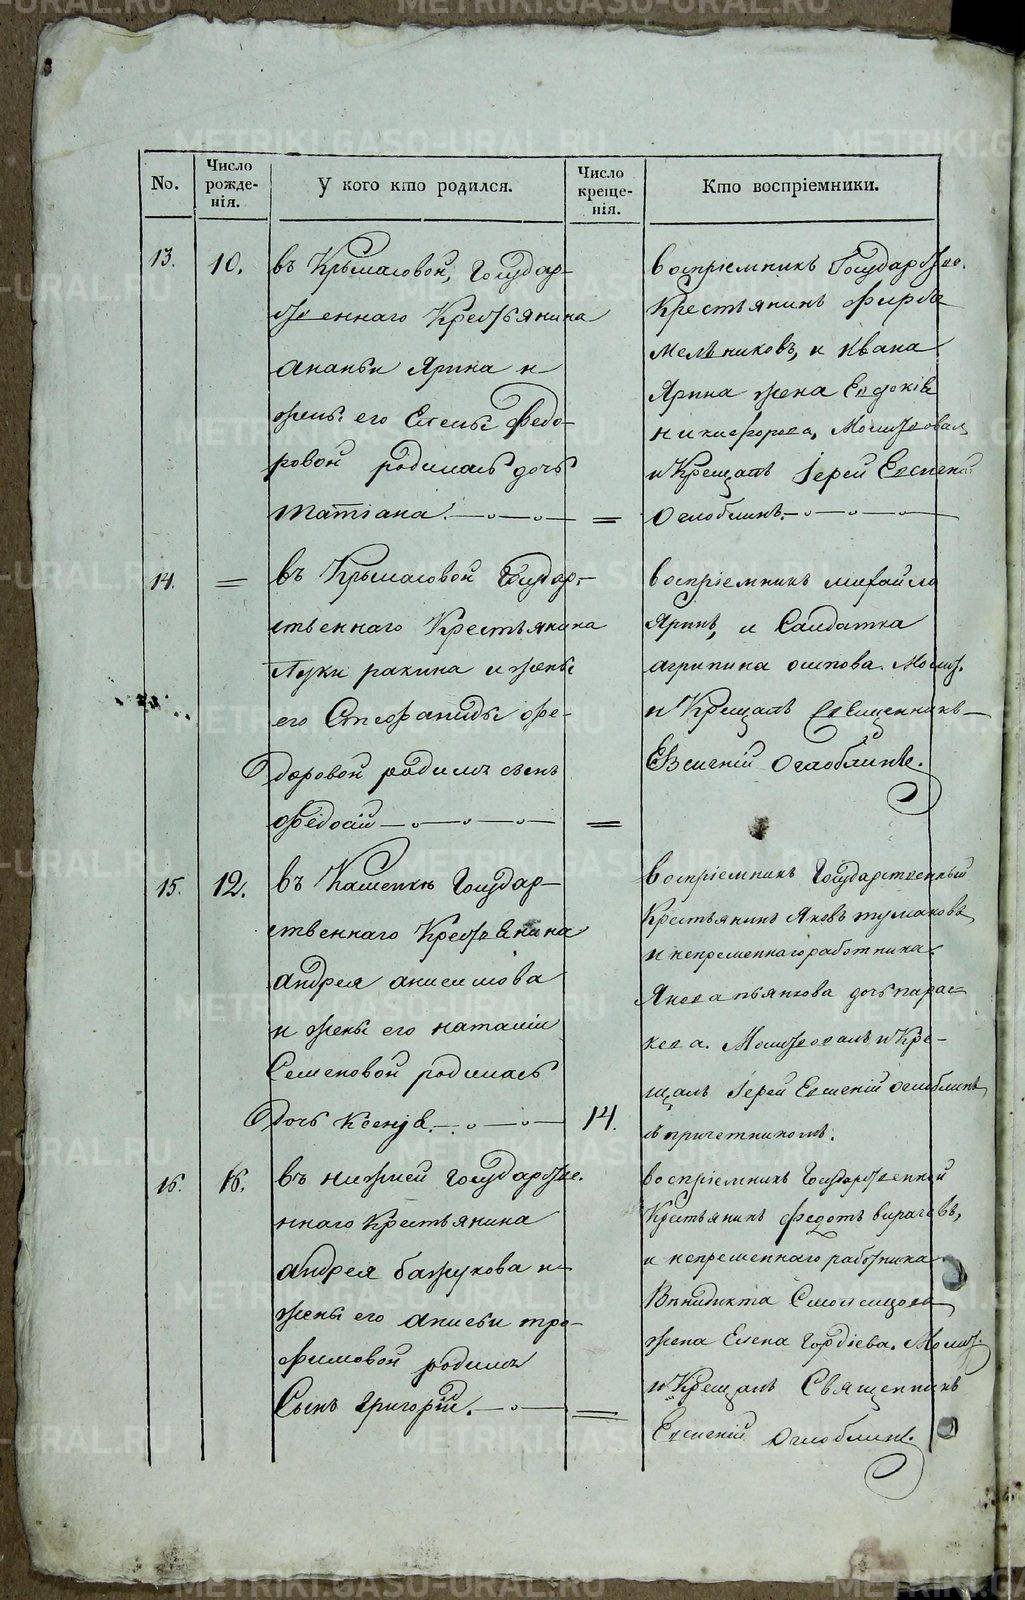 No.
Число рожде-нія.
У кого кто родился.
Число креще-нія.
Кто воспріемники.
13.
10.
въ Крымаювой, Государ-
ственнаго Крестьянина
Ананьи Ярина и
жены его Елены Федо-
ровой родилась дочь
Татіана.
=
воспріемникъ Государствен.
Крестьянинъ Фирсъ
Мельниковъ, и Ивана
Ярина жена Евдокія
Никифорова, Молитвовал
и Крещалъ Іерей Евгеній
Оглоблинъ.
14.
=
въ Государ-
ственнаго Крестьянина
Луки ракина и жены
его Стефаниды Фе-
доровой родилъ сынъ
Федосій
=
воспріемникъ михайло
Яринъ, и Салдатка
агрипина осипова. Молит.
и Крещалъ Священникъ
Евгеній Оглоблинъ.
15.
12.
въ Каменкѣ Государ-
ственнаго Крестьянина
андрея анисимова
и жены его наталіи
Семеновой родилась
Дочь Ксенія.
14.
воспріемникъ Государственный
Крестьянинъ Яковъ тумаковъ
и непременнаго работника
дочь парас-
кева. Молитвовалъ и Кре-
щалъ Іерей Евгеній оглоблинъ
съ причетникомъ.
16.
16.
въ нижней Государстве.
ннаго Крестьянина
андрея бажукова и
жены его анисьи тро-
фимовой родилъ
Сынъ григорій.
=
воспріемникъ Государственной
Крестьянинъ Федотъ
и непременнаго работника
Винидикта
жена Елена Гордіева. Молит.
и Крещалъ Священникъ
Евгеній Оглоблинъ.